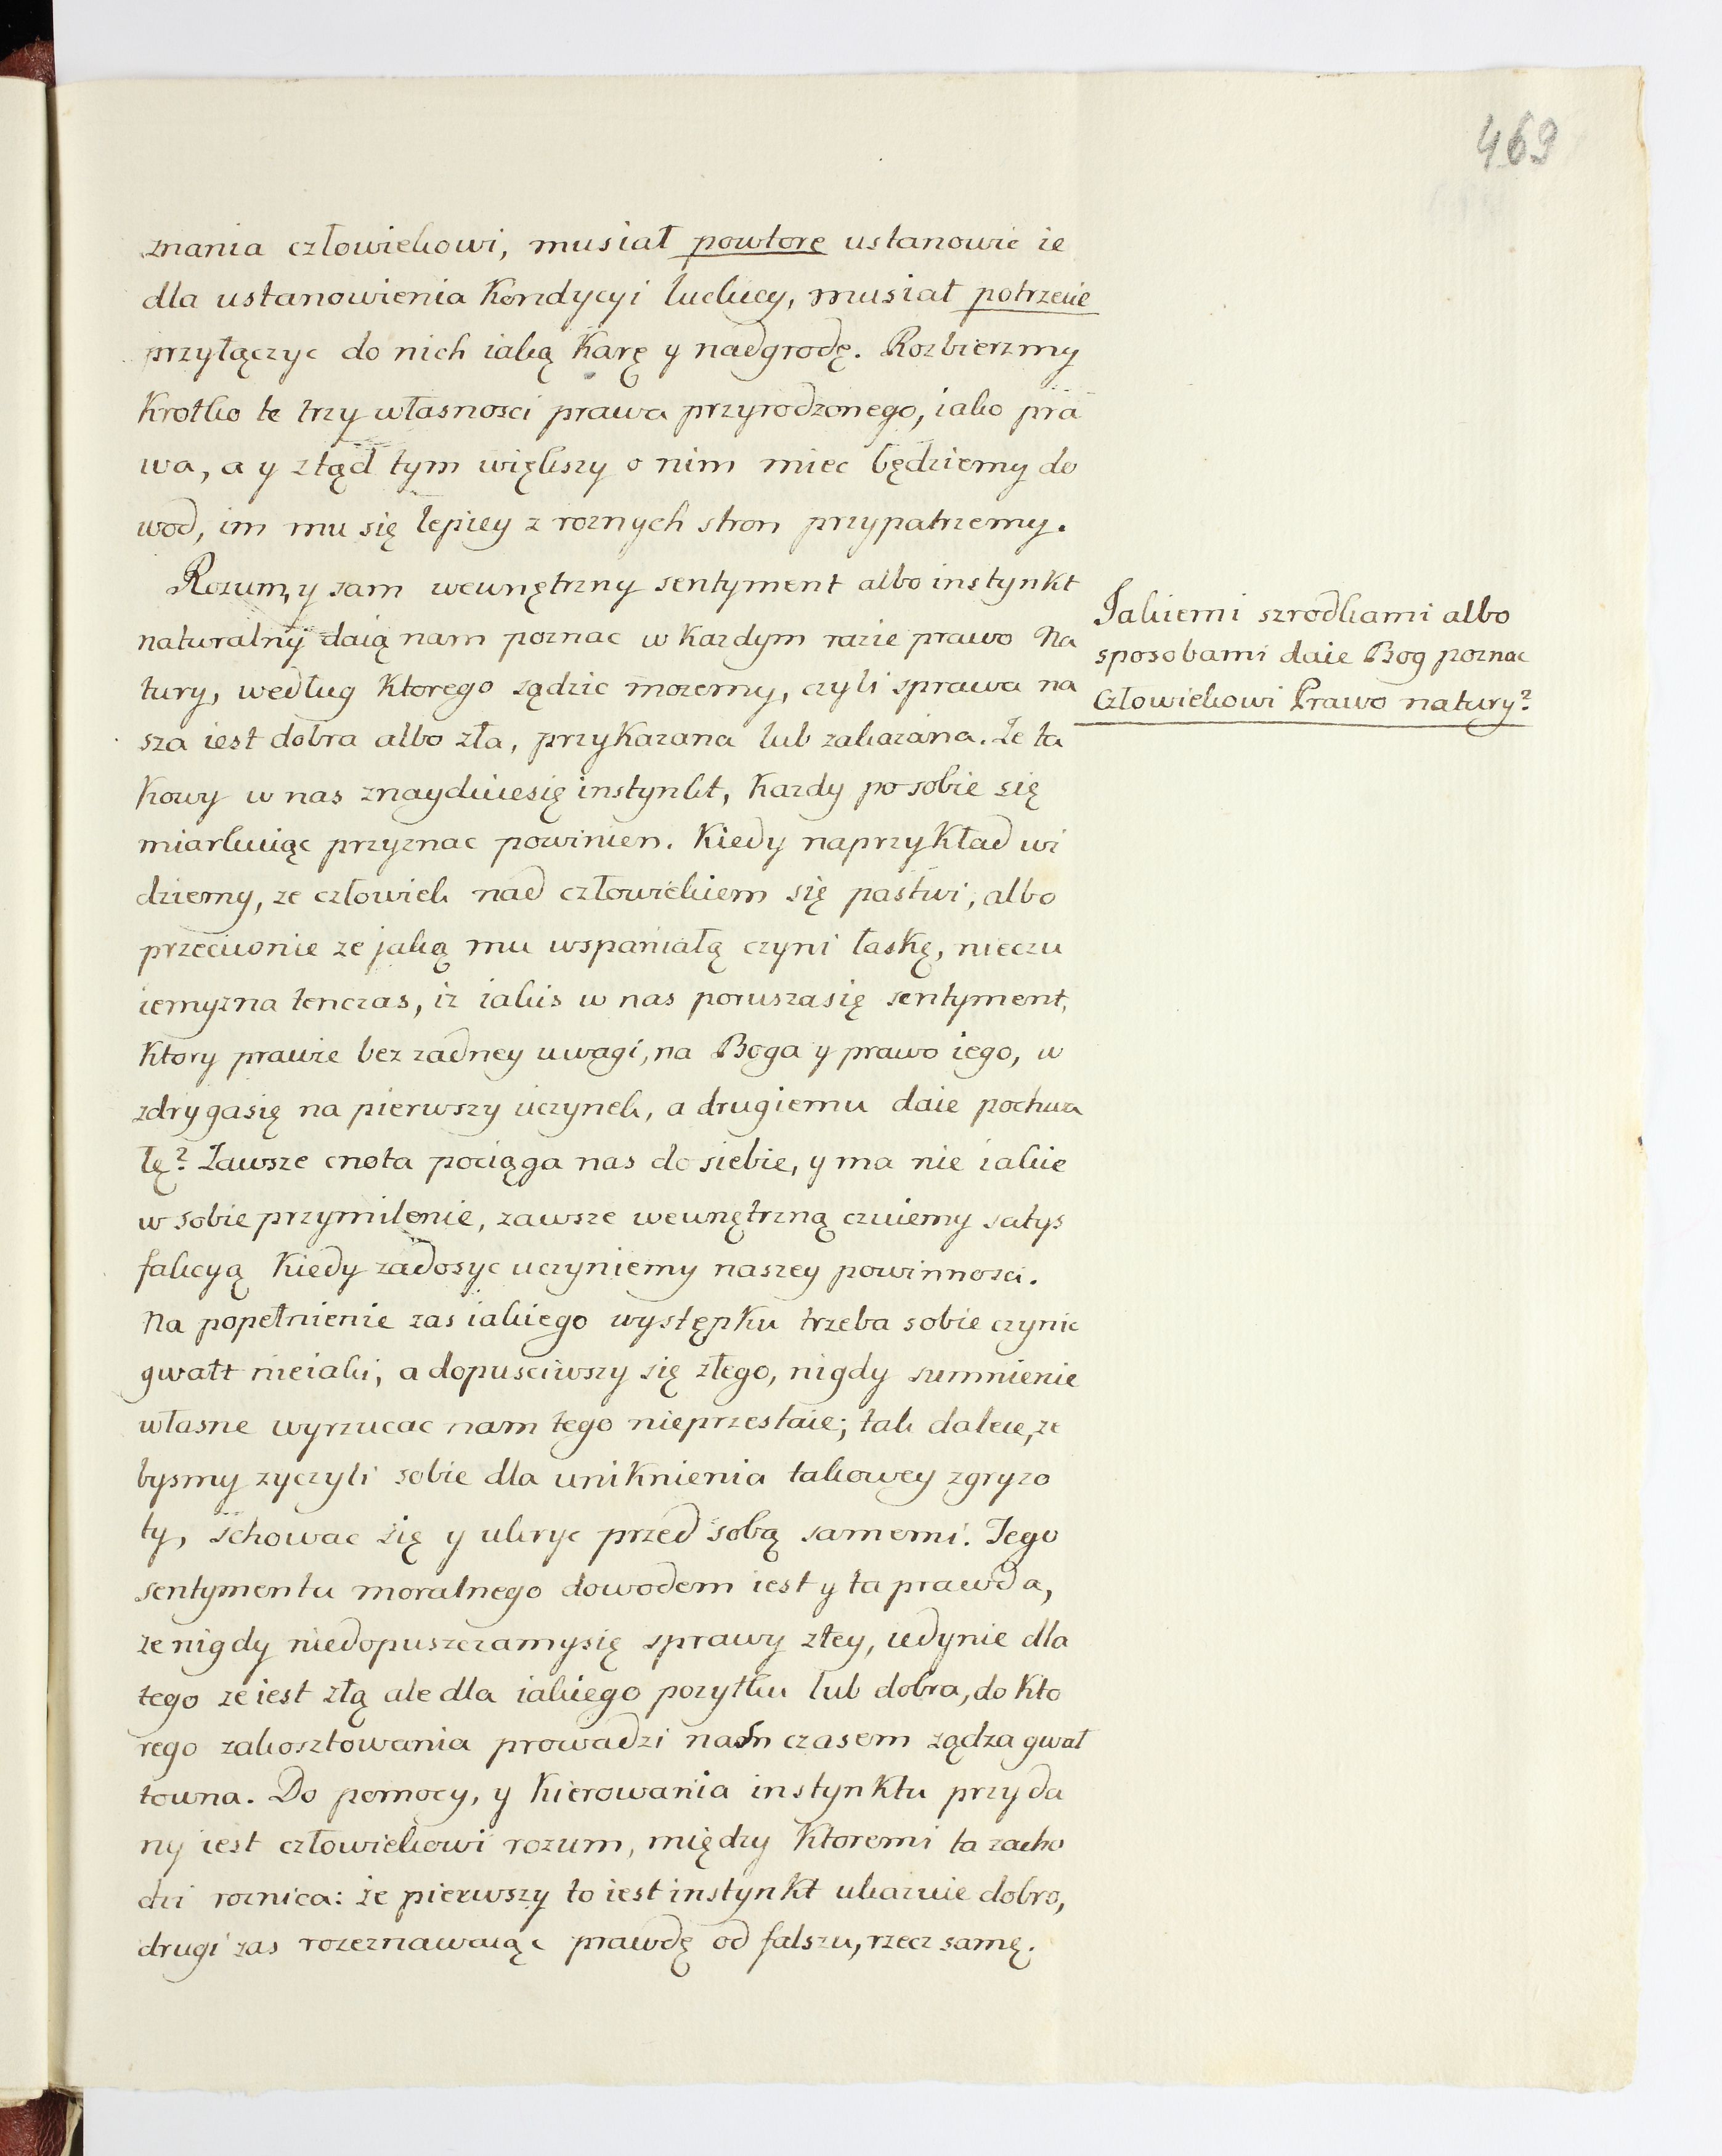 469
znania człowiekowi, musiał powtore ustanowic ie
dla ustanowienia Kondycyi ludzkiey, musiał potrzecie
przyłączyc do nich iaką Karę y nadgrodę. Rozbierzmy
Krotko te trzy własnosci prawa przyrodzonego, iako pra
wa, a y ztąd tym większy o nim miec będziemy do
wod, im mu się lepiey z roznych stron przypatrzemy.
Rozum, y sam wewnętrzny sentyment albo instynkt
naturalny daią nam poznac w Kazdym razie prawo Na
tury, według Ktorego sądzic mozemy, czyli sprawa na
sza iest dobra albo zła, przykazana lub zakazana. Ze ta
Kowy w nas znayduiesię instynkt, Kazdy po sobie się
miarkuiąc przyznac powinien. Kiedy naprzykład wi
dziemy, ze człowiek nad człowiekiem się pastwi, albo
przeciwnie ze jaką mu wspaniałą czyni łaskę, nieczu
iemyzna tenczas, iz iakis w nas poruszasię sentyment,
Ktory prawie bez zadney uwagi, na Boga y prawo iego, w
zdrygasię na pierwszy uczynek, a drugiemu daie pochwa
łę? Zawsze cnota pociąga nas do siebie, y ma nie iakie
w sobie przymilenie, zawsze wewnętrzną czuiemy satys
fakcyą Kiedy zadosyc uczyniemy naszey powinnosci.
Na popełnienie zas iakiego występku trzeba sobie czynic
gwałt nieiaki, a dopusciwszy się złego, nigdy sumnienie
własne wyrzucac nam tego nieprzestaie; tak dalece, ze
bysmy zyczyli sobie dla uniknienia takowey zgryzo
ty, schowac się y ukryc przed sobą samemi. Tego
sentymentu moralnego dowodem iest y ta prawda,
ze nigdy niedopuszczamysię sprawy złey, iedynie dla
tego ze iest złą ale dla iakiego pozytku lub dobra, do Kto
rego zakosztowania prowadzi nas czasem ządza gwał
towna. Do pomocy, y Kierowania instynktu przyda
ny iest człowiekowi rozum, między Ktoremi ta zacho
dzi roznica: że pierwszy to iest instynkt ukazuie dobro,
drugi zas rozeznawaiąc prawdę od falszu, rzecz samę.
Jakiemi szrodkami albo
sposobami daie Bog poznac
Człowiekowi Prawo natury?